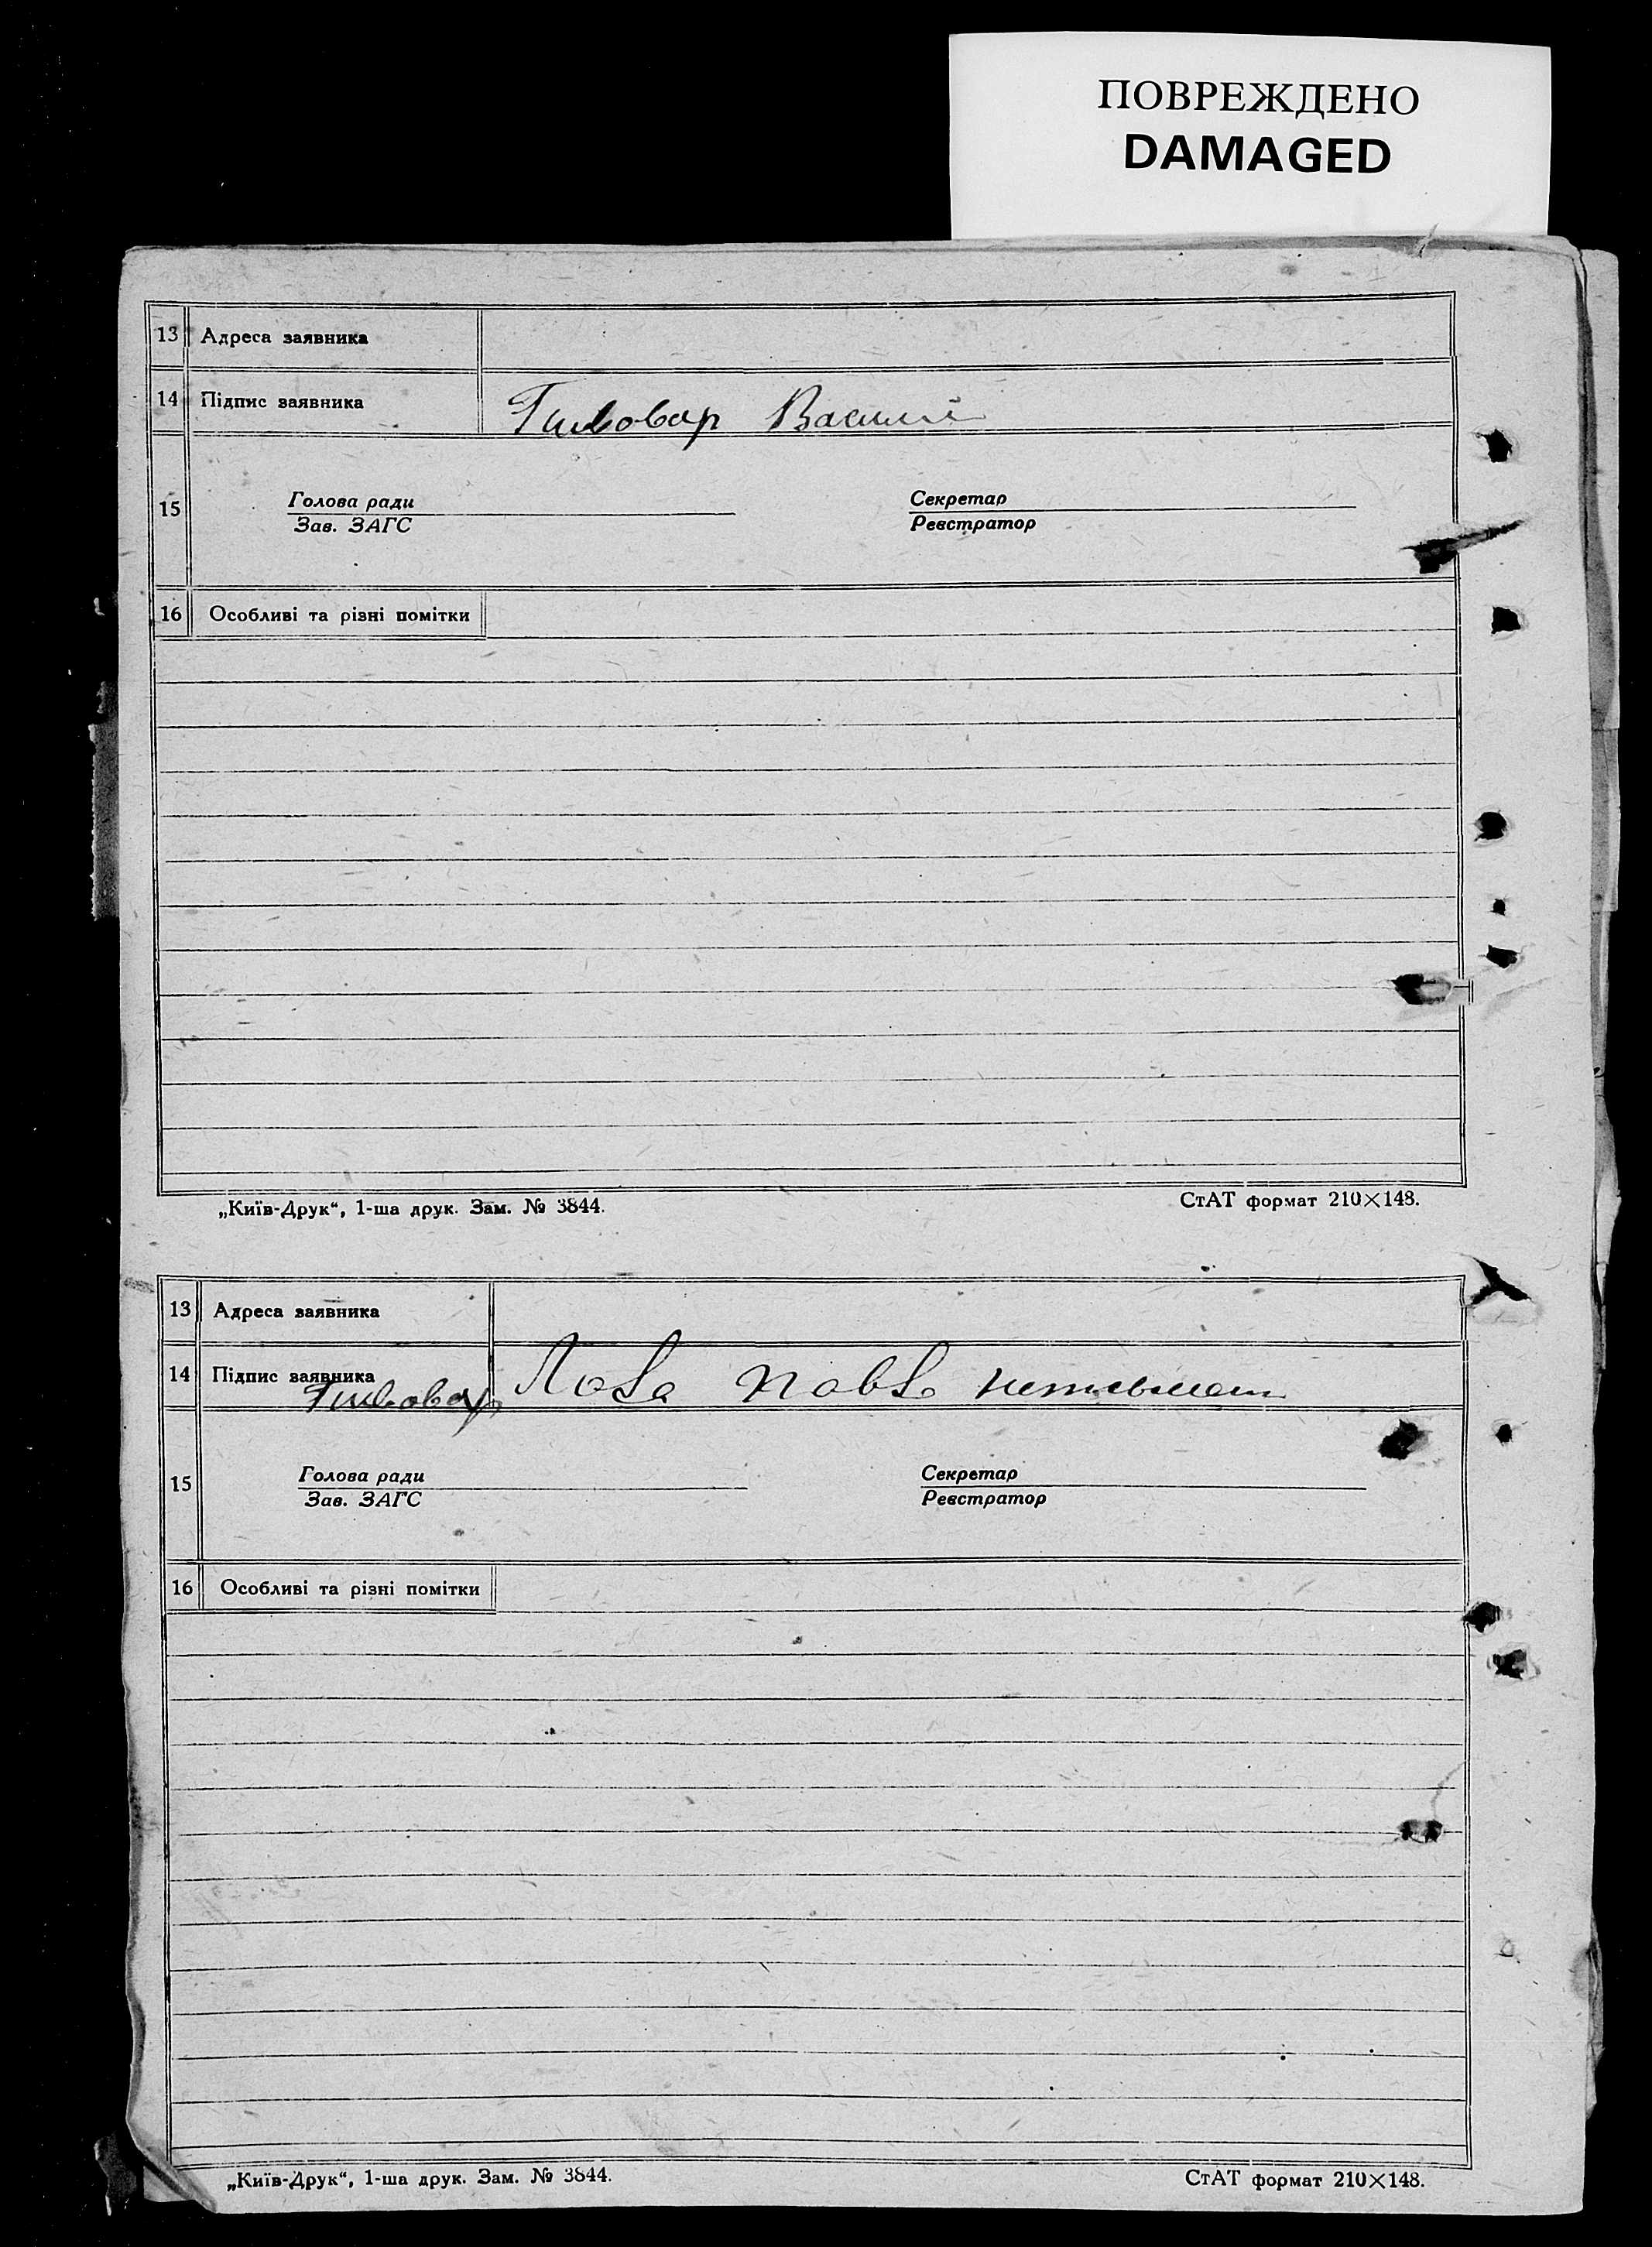 ПОВРЕЖДЕНО
DAMAGED
13 Адреса заявника
14 Підпис заявника Пивовар Василь
15 Голова ради Секретар
Зав. ЗАГС Реєстратор
16 Особливі та різні помітки
„Київ-Друк“, 1-ша друк. Зам. № 3844. СтАТ формат 210×148.
13 Адреса заявника
14 Підпис заявника Пивовар
15 Голова ради Секретар
Зав. ЗАГС Реєстратор
16 Особливі та різні помітки
„Київ-Друк“, 1-ша друк. Зам. № 3844. СтАТ формат 210×148.